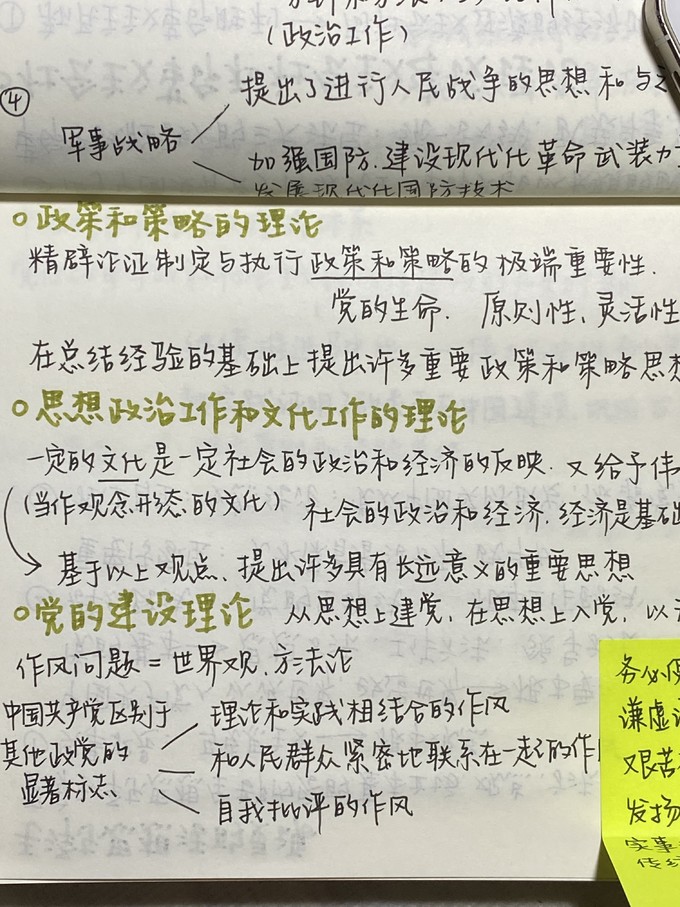 (政治工作)
④
提出了进行人民战争的思想和与之
军事战略
加强国防.建设现代化革命武装力
发展现代化国防技术
政策和策略的理论
精辟论证制定与执行政策和策略的极端重要性.
党的生命. 原则性、灵活性
在总结经验的基础上提出许多重要政策和策略思想
思想政治工作和文化工作的理论
一定的文化是一定社会的政治和经济的反映.又给予伟
(当作观念形态的文化) 社会的政治和经济.经济是基础
基于以上观点、提出许多具有长远意义的重要思想
党的建设理论 从思想上建党,在思想上入党,以
作风问题=世界观.方法论
中国共产党区别于
其他政党的
显著标志
理论和实践相结合的作风
和人民群众紧密地联系在一起的作
自我批评的作风
务必
谦虚
艰苦
发扬
实事
传统